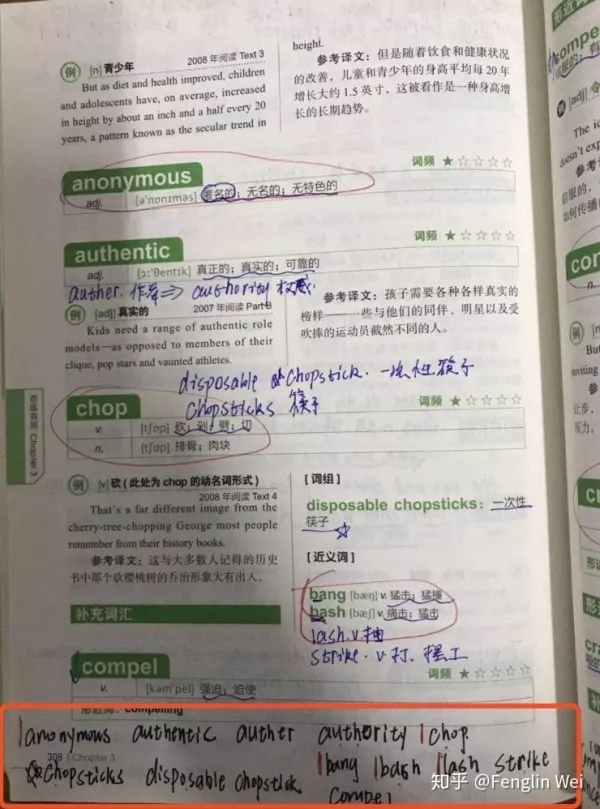 例 [n] 青少年 2008 年阅读 Text 3
But as diet and health improved, children
and adolescents have, on average, increased
in height by about an inch and a half every 20
years, a pattern known as the secular trend in
height.
参考译文：但是随着饮食和健康状况
的改善，儿童和青少年的身高平均每 20 年
增长大约 1.5 英寸，这被看作是一种身高增
长的长期趋势。
anonymous 词频 ★☆☆☆☆
adj. [ə'nɒnɪməs] 匿名的；无名的；无特色的
authentic 词频 ★☆☆☆☆
adj. [ɔː'θentɪk] 真正的；真实的；可靠的
auther. 作者 ⇒ authority 权威
例 [adj] 真实的 2007 年阅读 Part B
Kids need a range of authentic role
models—as opposed to members of their
clique, pop stars and vaunted athletes.
参考译文：孩子需要各种各样真实的
榜样———些与他们的同伴、明星以及受
吹捧的运动员截然不同的人。
disposable chopstick. 一次性筷子
chopsticks 筷子
chop 词频 ★☆☆☆☆
v. [tʃɒp] 砍；剁；劈；切
n. [tʃɒp] 排骨；肉块
例 [v] 砍 ( 此处为 chop 的动名词形式 )
2008 年阅读 Text 4
That's a far different image from the
cherry-tree-chopping George most people
remember from their history books.
参考译文：这与大多数人记得的历史
书中那个砍樱桃树的乔治形象大有出入。
[ 词组 ]
disposable chopsticks：一次性
筷子
[ 近义词 ]
bang [bæŋ] v. 猛击；猛撞
bash [bæʃ] v. 痛击；猛击
lash. v. 抽
strike. v. 打、摆工
补充词汇
compel 词频 ★☆☆☆☆
v. [kəm'pel] 强迫；迫使
形近词：compelling
anonymous authentic auther authority chop
308 | Chapter 3
chopsticks disposable chopstick bang bash lash strike
compel
Chapter 3
知乎 @Fenglin Wei